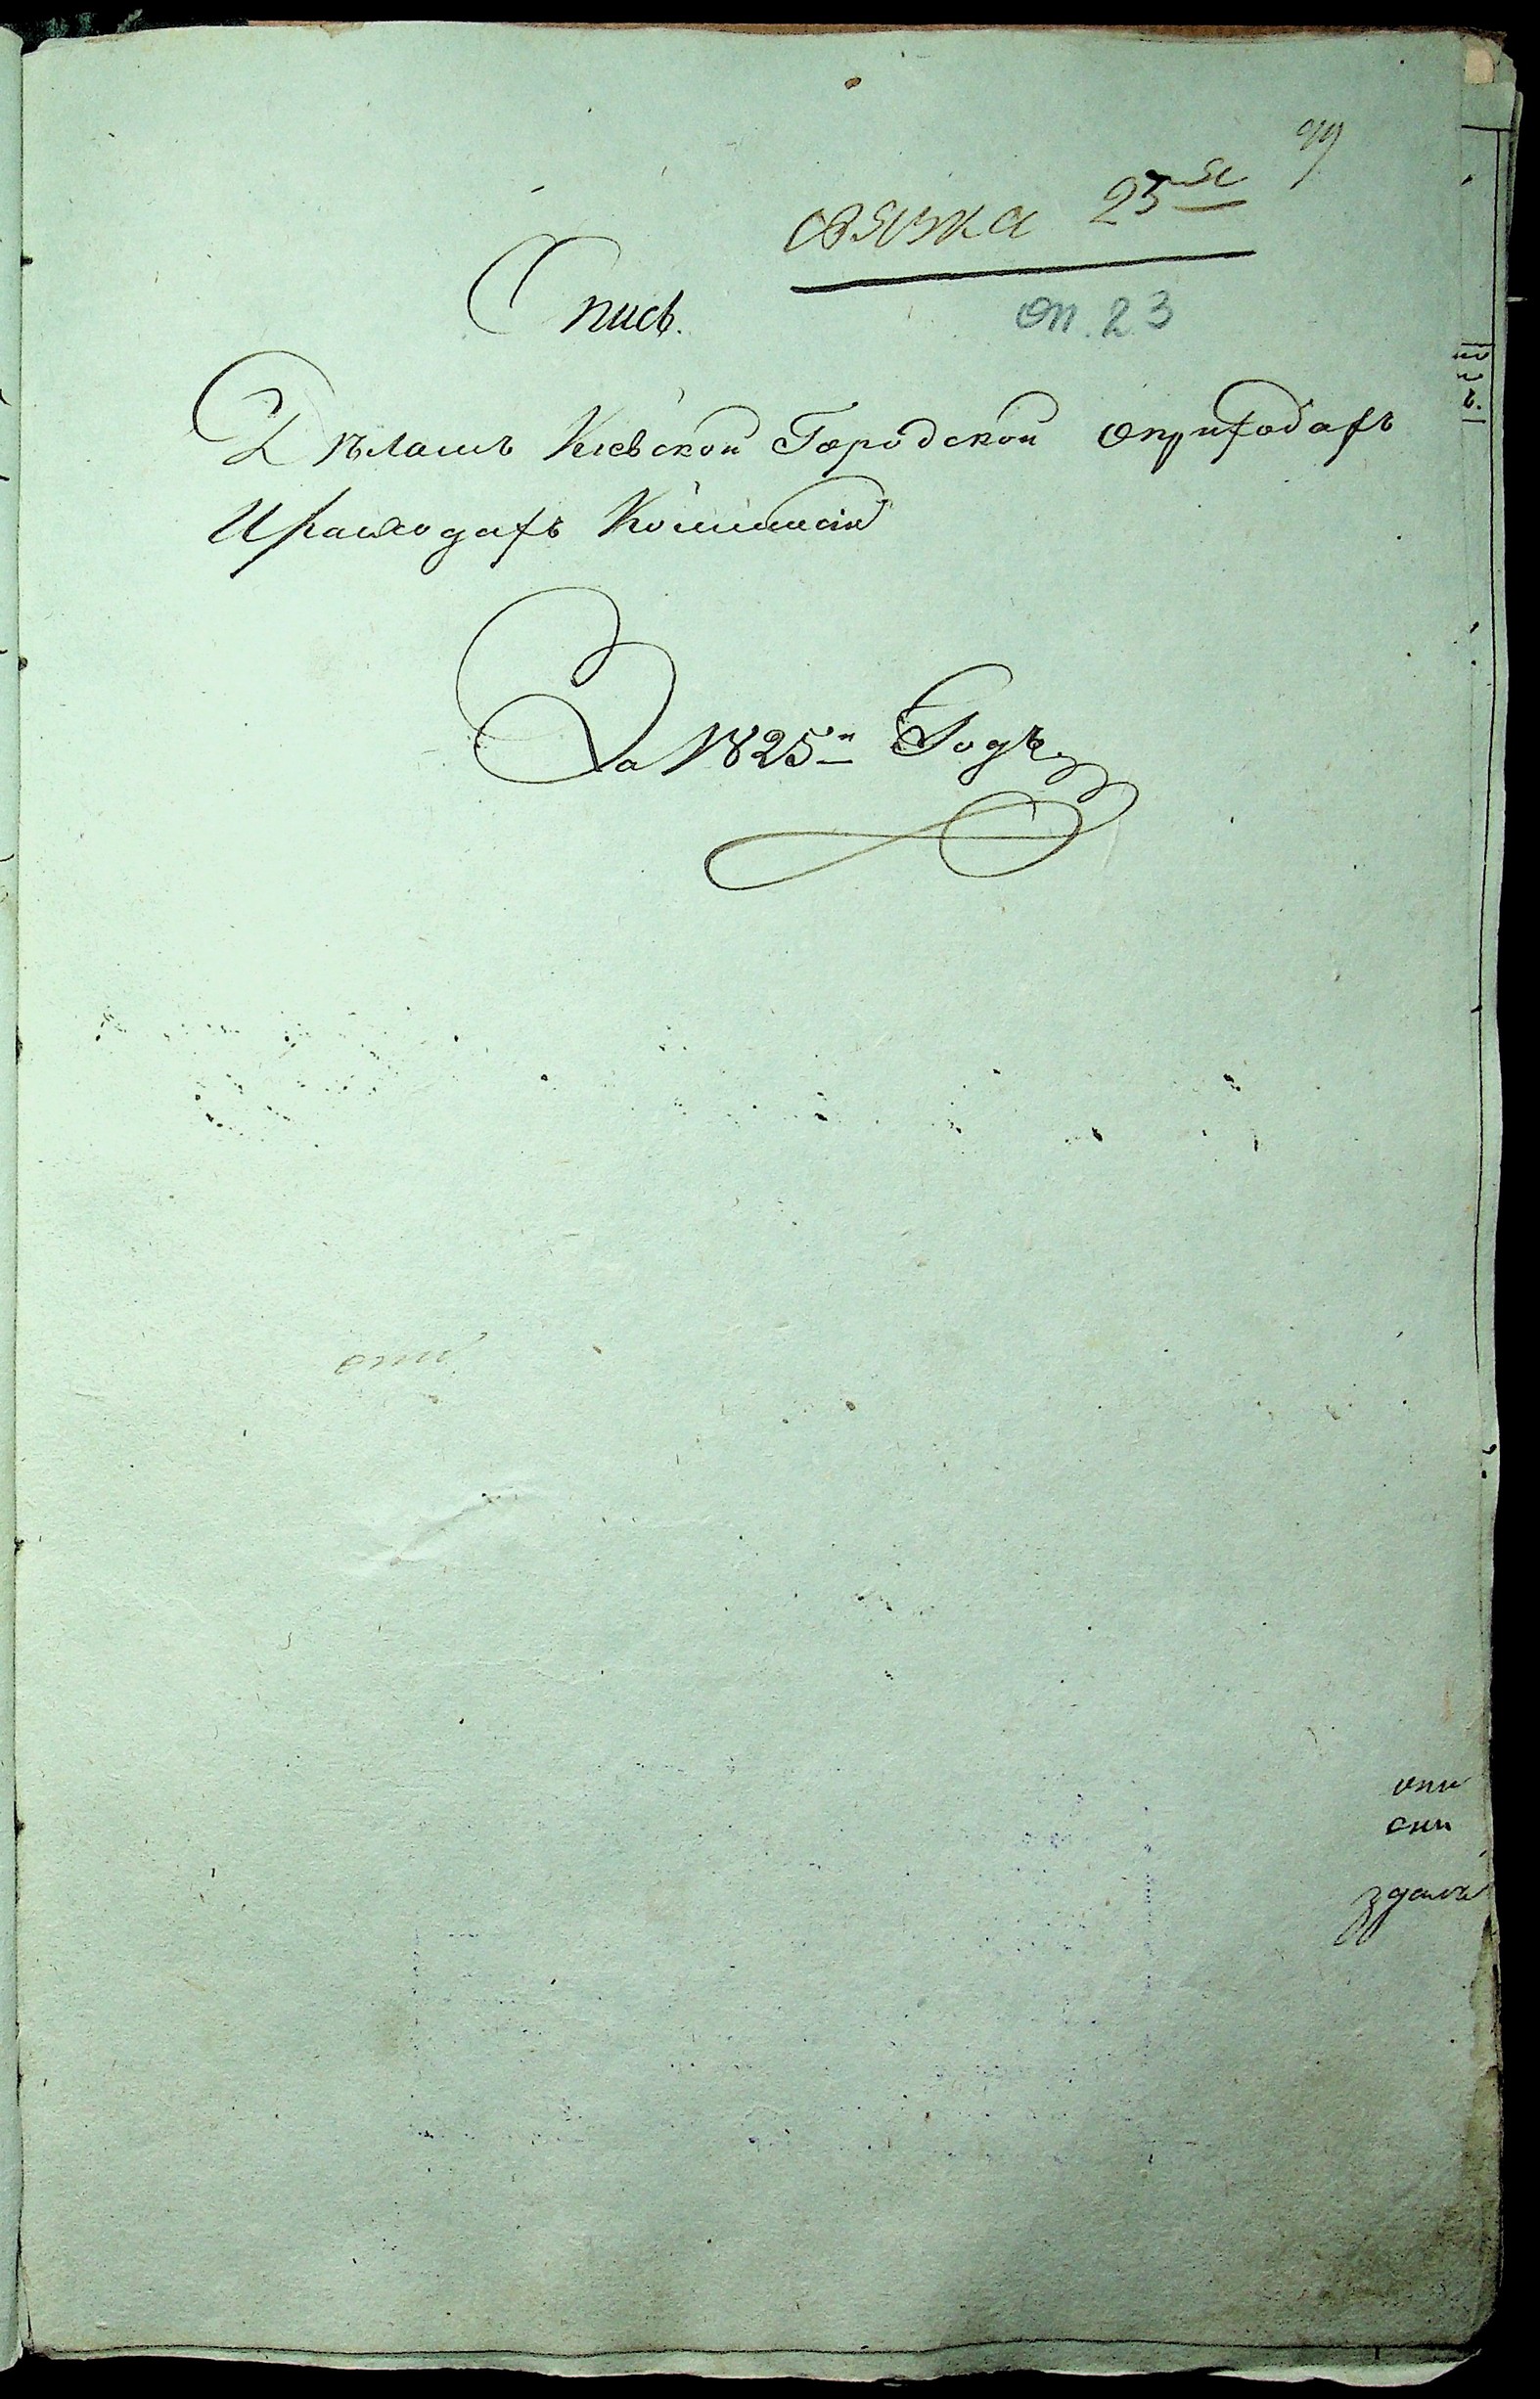 99
связка 25я
Опись.
оп. 23
Дѣламъ Кіевской Городской оприходахъ
Ирасходахъ Коммисіи
За 1825й Годъ
опи